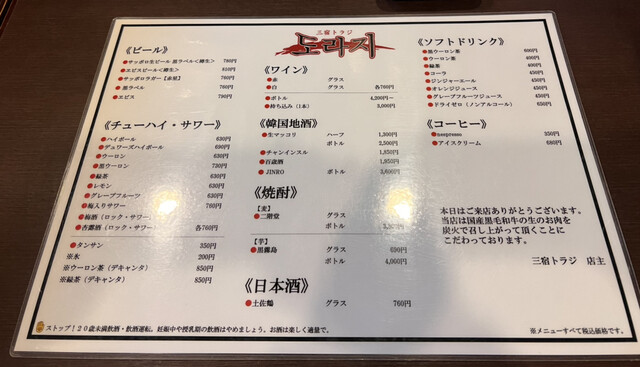 三宿トラジ
도라지
《ビール》
サッポロ生ビール 黒ラベル<樽生> 780円
エビスビール<樽生> 810円
サッポロラガー【赤星】 760円
黒ラベル 760円
エビス 790円
《チューハイ・サワー》
ハイボール 630円
デュワーズハイボール 690円
ウーロン 630円
黒ウーロン 730円
緑茶 630円
レモン 630円
グレープフルーツ 630円
梅入りサワー 760円
梅酒（ロック・サワー）
杏露酒（ロック・サワー） 各760円
タンサン 350円
※氷 200円
※ウーロン茶（デキャンタ） 850円
※緑茶（デキャンタ） 850円
《ワイン》
赤 グラス
白 グラス 各760円
ボトル 4,200円～
持ち込み（1本） 3,000円
《韓国地酒》
生マッコリ ハーフ 1,300円
ボトル 2,500円
チャンインスル 1,850円
百歳酒 1,950円
JINRO ボトル 3,600円
《焼酎》
【麦】
二階堂 グラス
ボトル
【芋】
黒霧島 グラス 690円
ボトル 4,000円
《日本酒》
土佐鶴 グラス 760円
《ソフトドリンク》
黒ウーロン茶 600円
ウーロン茶 400円
緑茶 400円
コーラ 450円
ジンジャーエール 450円
オレンジジュース 450円
グレープフルーツジュース 450円
ドライゼロ（ノンアルコール） 630円
《コーヒー》
nespresso 350円
アイスクリーム 680円
本日はご来店ありがとうございます。
当店は国産黒毛和牛の生のお肉を
炭火で召し上がって頂くことに
こだわっております。
三宿トラジ 店主
ストップ！20歳未満飲酒・飲酒運転。妊娠中や授乳期の飲酒はやめましょう。お酒は楽しく適量で。
※メニューすべて税込価格です。